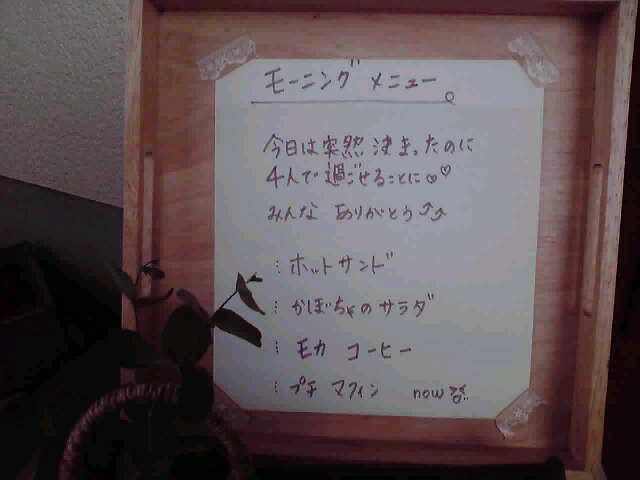 モーニング メニュー。
今日は突然 決まったのに
4人で過ごせることに∞♡
みんな ありがとう⤴⤴
⋮ホットサンド
⋮かぼちゃのサラダ
⋮モカ コーヒー
⋮プチ マフィン now